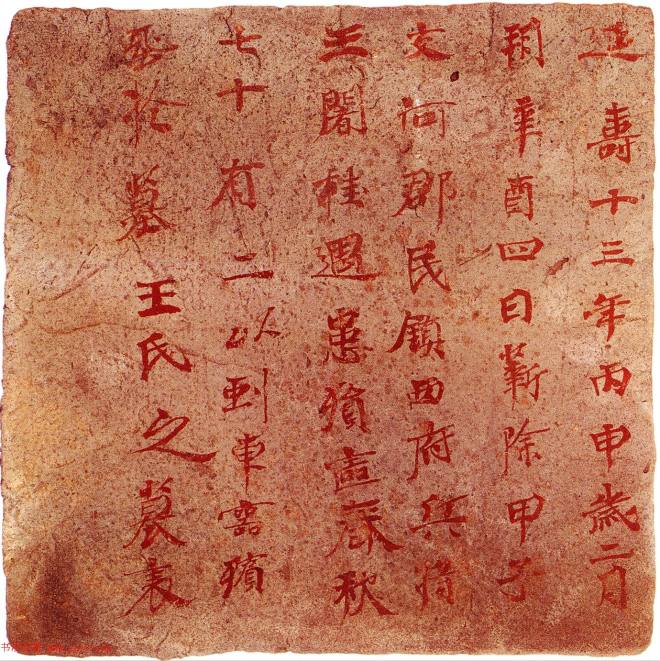 延壽十三年丙申歲二月
朔辛酉四日蘄除甲子
交河郡民鎮西府兵將
王闍桂遇患殯喪春秋
七十有二以到車靈殯
葬於墓王氏之墓表